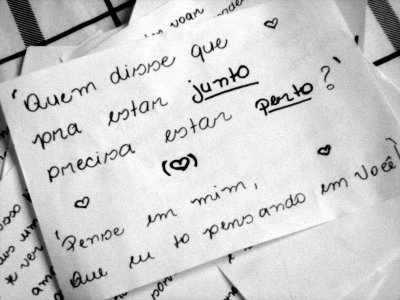 'Quem disse que
pra estar junto
precisa estar perto?'
'Pense em mim,
Que eu to pensando em você!